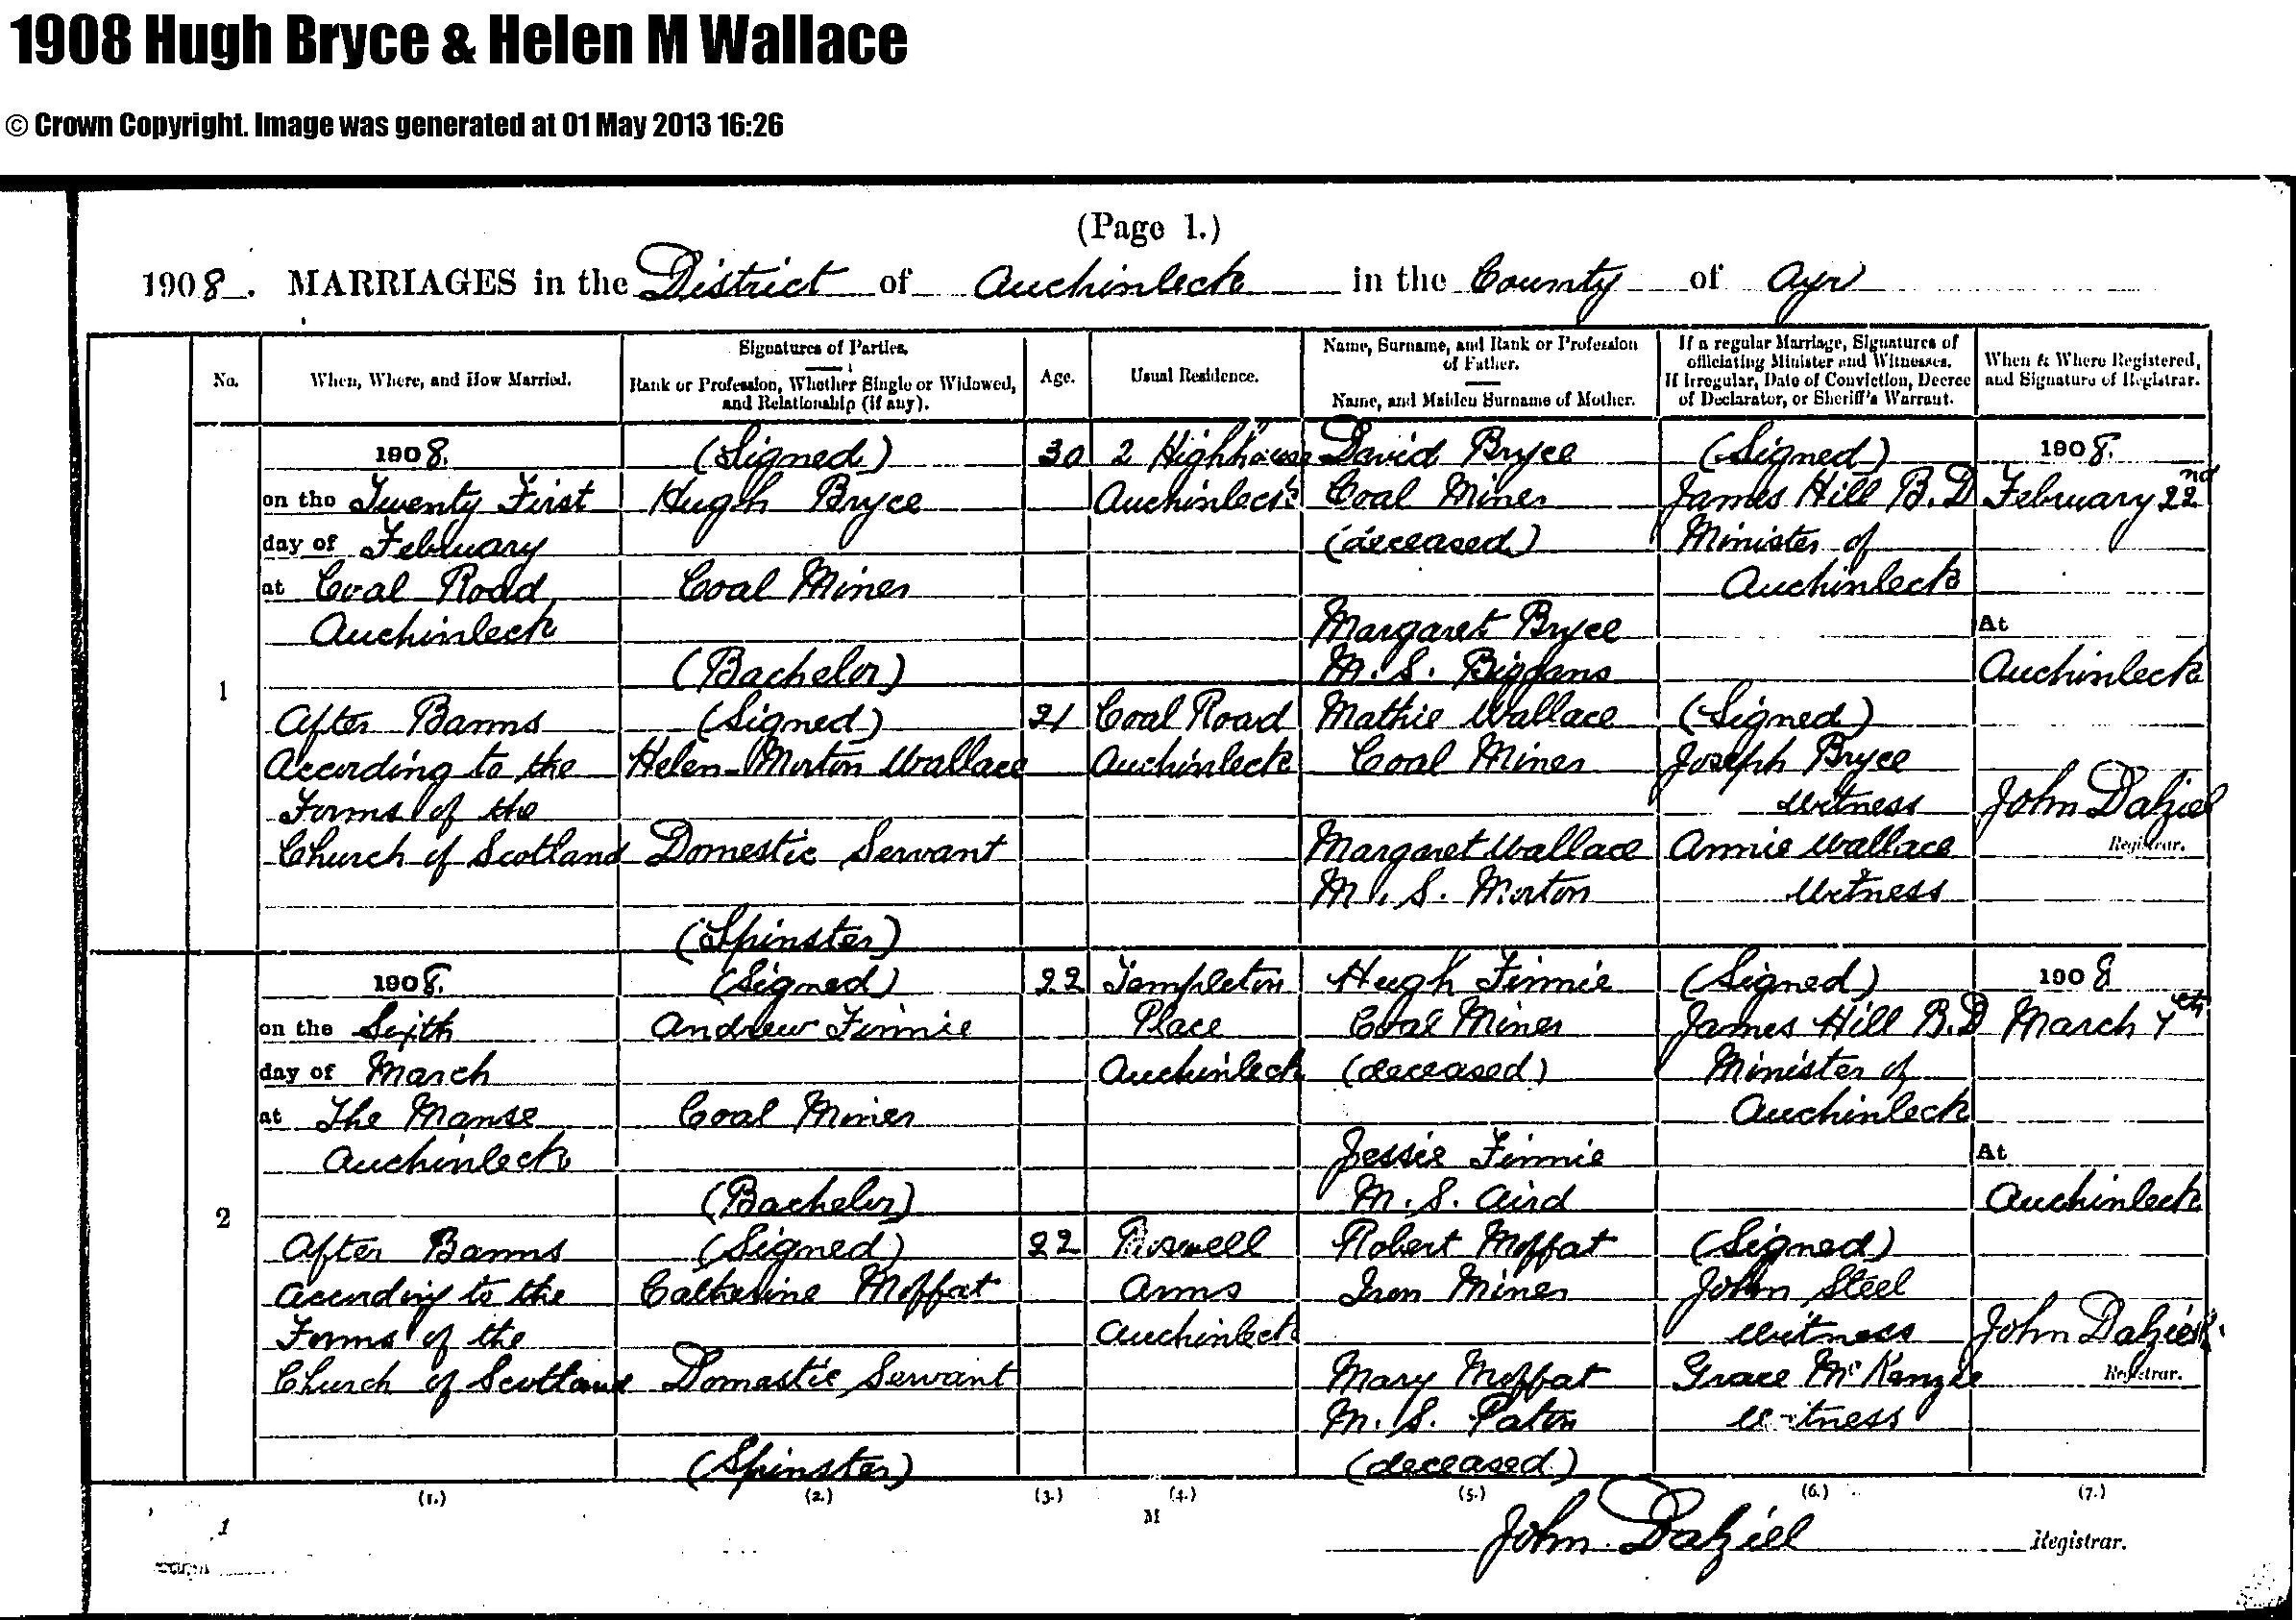 1908 Hugh Bryce & Helen M Wallace
© Crown Copyright. Image was generated at 01 May 2013 16:26
(Page 1.)
1908. MARRIAGES in the District of Auchinleck in the County of Ayr
No.
When, Where, and How Married.
Signatures of Parties.
Rank or Profession, Whether Single or Widowed,
and Relationship (if any).
Age.
Usual Residence.
Name, Surname, and Rank or Profession
of Father.
Name, and Maiden Surname of Mother.
If a regular Marriage, Signatures of
officiating Minister and Witnesses.
If irregular, Date of Conviction, Decree
of Declarator, or Sheriff's Warrant.
When & Where Registered,
and Signature of Registrar.
1
1908.
on the Twenty First
day of February
at Coal Road
Auchinleck
After Banns
According to the
Forms of the
Church of Scotland
(Signed)
Hugh Bryce
Coal Miner
(Bachelor)
(Signed)
Helen Morton Wallace
Domestic Servant
(Spinster)
30
21
2 Highhouse
Auchinleck
Coal Road
Auchinleck
David Bryce
Coal Miner
(deceased)
Margaret Bryce
M.S. Biggans
Mathie Wallace
Coal Miner
Margaret Wallace
M.S. Morton
(Signed)
James Hill B.D
Minister of
Auchinleck
(Signed)
Joseph Bryce
witness
Annie Wallace
witness
1908.
February 22nd
At
Auchinleck
John Dalziel
Registrar.
2
1908.
on the Sixth
day of March
at The Manse
Auchinleck
After Banns
According to the
Forms of the
Church of Scotland
(Signed)
Andrew Finnie
Coal Miner
(Bachelor)
(Signed)
Catherine Moffat
Domestic Servant
(Spinster)
22
22
Templeton
Place
Auchinleck
Arms
Auchinleck
Hugh Finnie
Coal Miner
(deceased)
Jessie Finnie
M.S. Aird
Robert Moffat
Iron Miner
Mary Moffat
M.S. Paton
(deceased)
(Signed)
James Hill B.D
Minister of
Auchinleck
(Signed)
John Steel
witness
Grace McKenzie
witness
1908
March 7th
At
Auchinleck
John Dalziel
Registrar.
(1.) (2.) (3.) (4.) (5.) (6.) (7.)
1
M
John Dalziel Registrar.